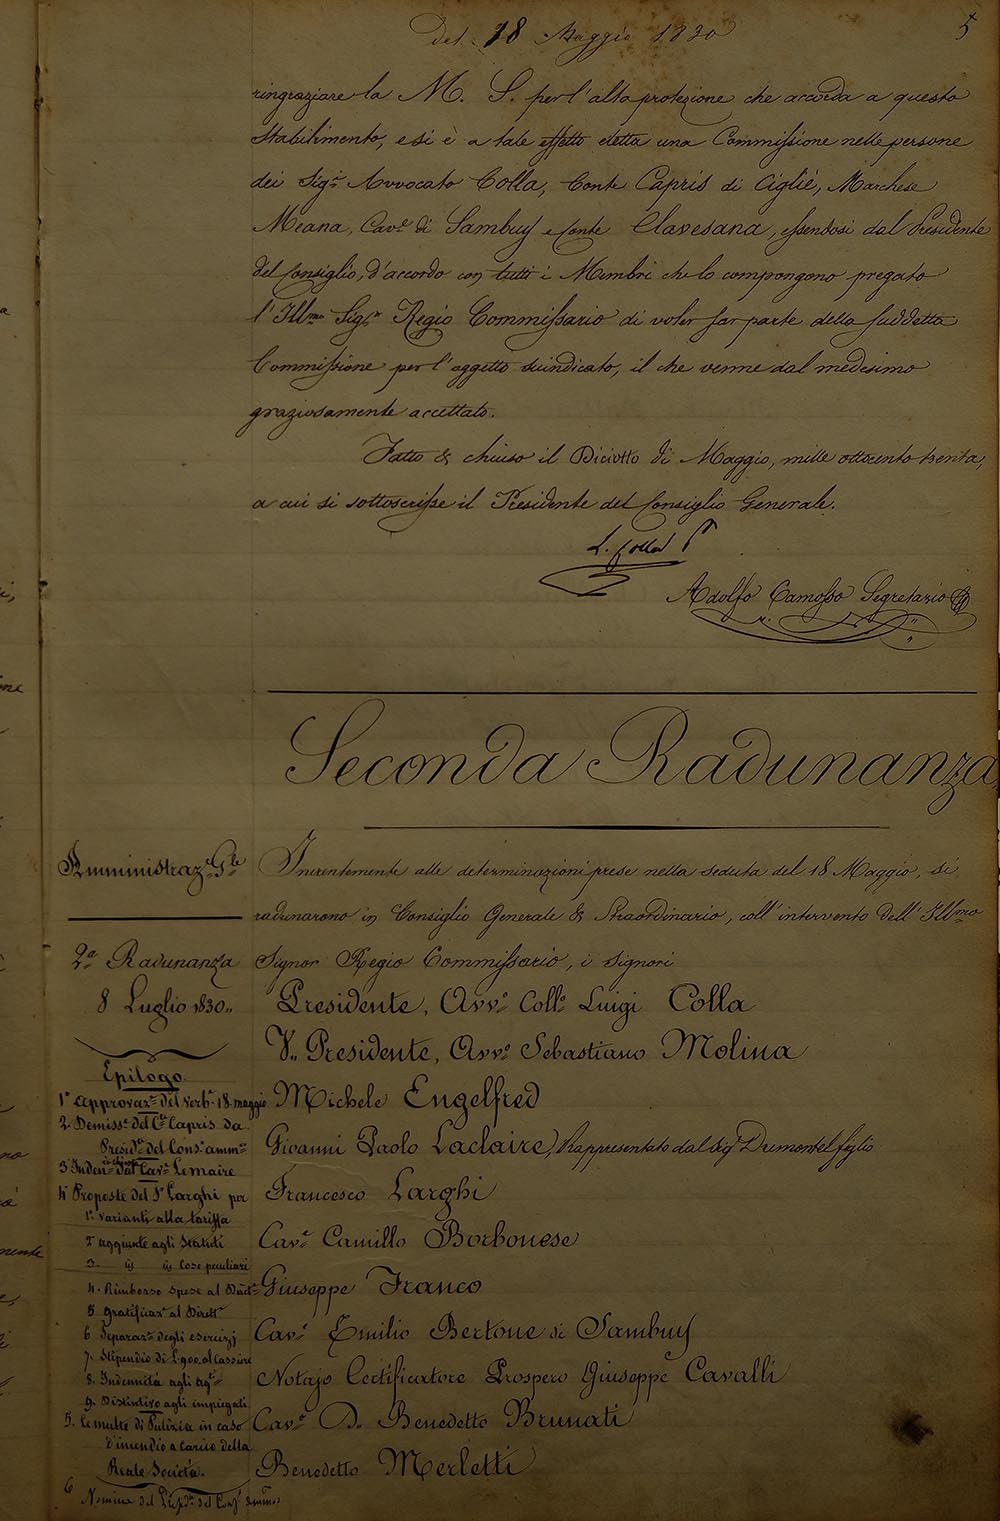 del 18 Maggio 1830
5
ringraziare la M. S. per l'alta protezione che accorda a questo
Stabilimento, e si è a tale effetto eletta una Commissione nelle persone
dei Sig.ri Avvocato Colla, Conte Capris di Cigliè, Marchese
Meana, Cav.e di Sambuy e Conte Clavesana, essendosi dal Presidente
del Consiglio, d'accordo con tutti i Membri che lo compongono pregato
l'Ill.mo Sig.r Regio Commissario di voler far parte della suddetta
Commissione per l'oggetto suindicato, il che venne dal medesimo
graziosamente accettato.
Fatto & chiuso il Diciotto di Maggio, mille ottocento trenta,
a cui si sottoscrisse il Presidente del Consiglio Generale.
L. Colla P
Adolfo Camosso Segretario
Seconda Radunanza
Amministraz.e G.le
2.a Radunanza
8 Luglio 1830.
Epilogo
1° Approvaz.e del Verb.e 18 maggio
2. Demiss.e del C.te Capris da
Presid.e del Cons.o amm.ne
3° Inden.tà dal Cav.e Lemaire
4° Proposte del S.r Larghi per
1.° Varianti alla tariffa
2° aggiunte agli Statuti
3. id id Cose peculiari
4. Rimborso spese al Dirett.e
5 Gratificaz.e al Dirett.e
6 Separaz.e degli esercizj
7. Stipendio di L. 900. al Cassiere
8. Indennità agli ag.ti
9. Distintivo agli impiegati
5. Le multe di Pulizia in caso
d'incendio a carico della
Reale Società.
6 Nomina del Presid.e del Cons.o amm.ne
Inerentemente alle determinazioni prese nella seduta del 18 Maggio, si
radunarono in Consiglio Generale & Straordinario, coll'intervento dell'Ill.mo
Signor Regio Commissario, i Signori
Presidente, Avv.o Coll.o Luigi Colla
V. Presidente, Avv.o Sebastiano Molina
Michele Engelfred
Giovanni Paolo Laclaire, Rappresentato dal Sig.r Dumontel figlio
Francesco Larghi
Cav.e Camillo Borbonese
Giuseppe Franco
Cav.e Emilio Bertone di Sambuy
Notajo Certificatore Prospero Giuseppe Cavalli
Cav.e D. Benedetto Brunati
Benedetto Merletti